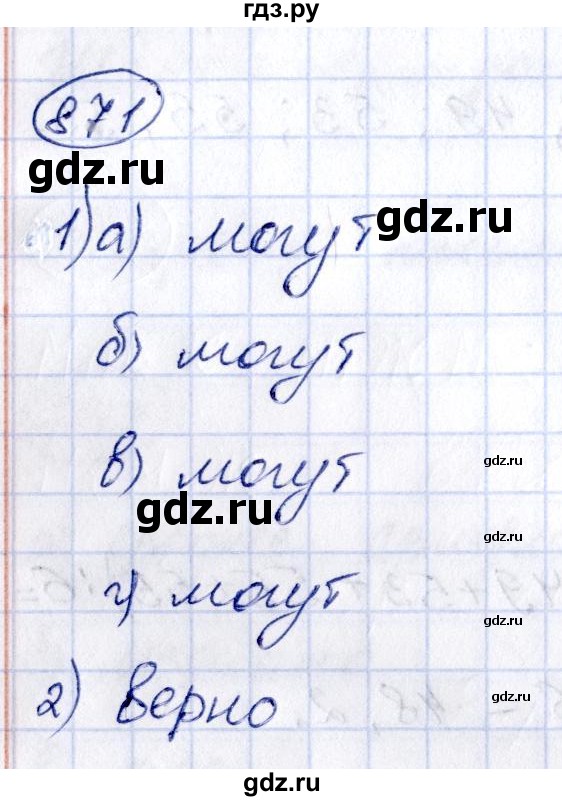 гдз.ру
871
gdz.ru
1) а) могут
gdz.ru
б) могут
в) могут
gdz.ru
gdz.ru
gdz.ru
г) могут
gdz.ru
2) верно
gdz.ru
gdz.ru